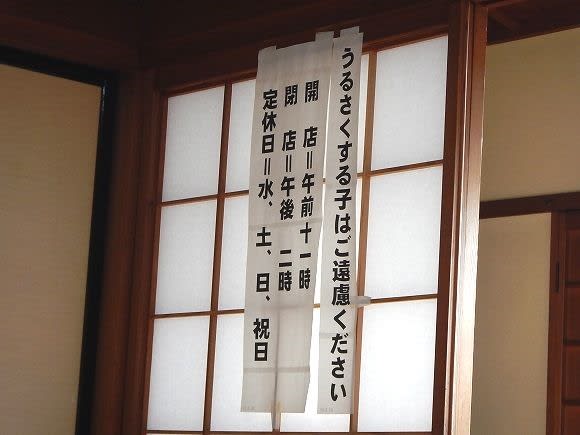 うるさくする子はご遠慮ください
開　店＝午前十一時
閉　店＝午後　二時
定休日＝水、土、日、祝日